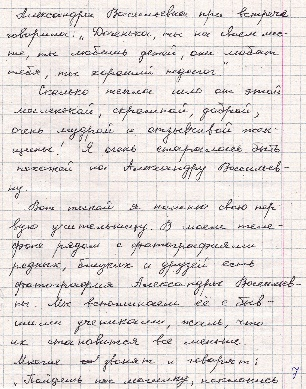 Александра Васильевна при встрече
говорила: „Доченька, ты на своем мес-
те, ты любишь детей, они любят
тебя, ты хороший педагог"
Сколько тепла шло от этой
маленькой, скромной, доброй,
очень мудрой и отзывчивой жен-
щины! Я очень стараюсь быть
похожей на Александру Васильев-
ну.
Вот такой я помню свою пер-
вую учительницу. В моем теле-
фоне рядом с фотографиями
родных, близких и друзей есть
фотография Александры Васильев-
ны. Мы вспоминаем её с быв-
шими учениками, жаль, что
их становится все меньше.
Многие звонят и говорят:
„Пойдешь на могилку, поклонись
7